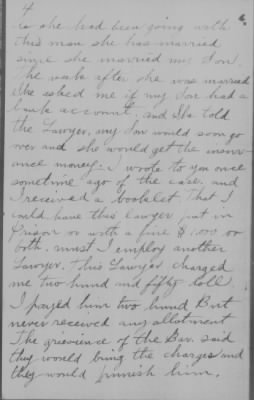 4
as she had been going with
this man she has married
since she married my Son.
The week after she was married
she asked me if my Son had a
bank account, and She told
the Lawyer, my Son would soon go
over and she would get the insur-
ance money. I wrote to you once
sometime ago of the case, and
I received a booklet that I
could have this lawyer put in
Prison or with a fine $1,000 00
both. must I employ another
Lawyer. This Lawyer charged
me two hund and fifty doll.
I payed him two hund But
never received any allotment
The grievience of the Bar. said
they would bring the charges and
they would punish him.